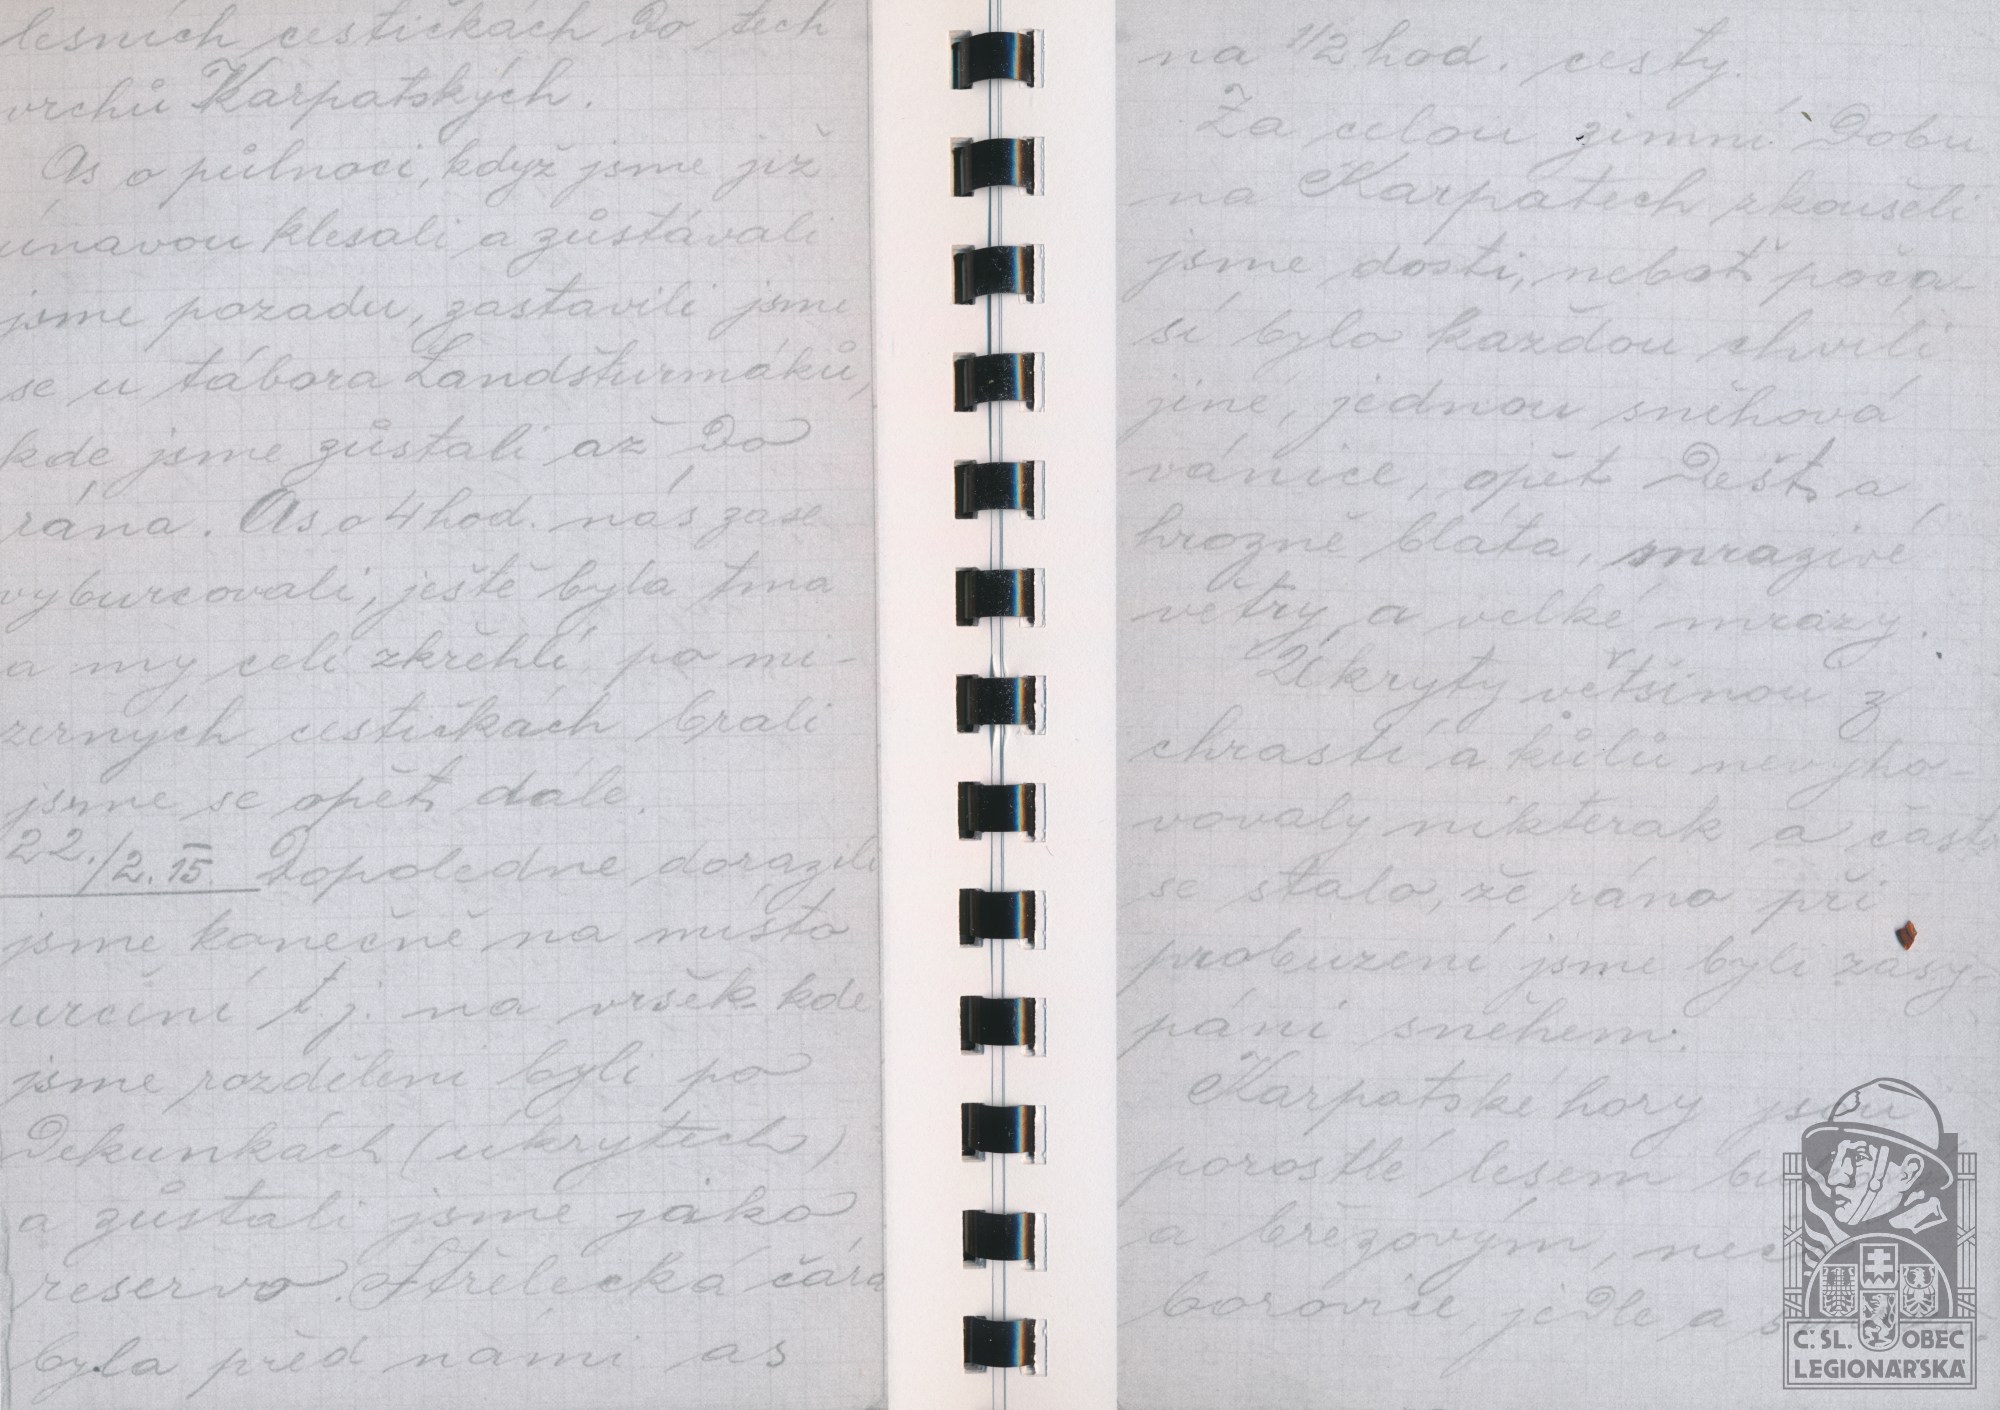 lesních cestičkách do těch
vrchů Karpatských.
As o půlnoci, když jsme již
únavou klesali a zůstávali
jsme pozadu, zastavili jsme
se u tábora Landšturmáků,
kde jsme zůstali až do
rána. As o 4 hod. nás zase
vyburcovali, ještě byla tma
a my celí zkřehlí po mi-
zerných cestičkách brali
jsme se opět dále.
22./2. 15. Dopoledne dorazili
jsme konečně na místo
určení t.j. na vršek kde
jsme rozděleni byli po
dekunkách (úkrytech)
a zůstali jsme jako
reservo. Střelecká čára
byla před námi as
na 1/2 hod. cesty.
Za celou zimní dobu
na Karpatech zkoušeli
jsme dosti, neboť poča-
sí bylo každou chvíli
jiné, jednou sněhová
vánice, opět dešť a
hrozné bláta, mrazivé
větry a velké mrazy.
Úkryty většinou z
chrastí a kůlů nevyho-
vovaly nikterak a často
se stalo, že ráno při
probuzení jsme byli zasy-
páni sněhem.
Karpatské hory jsou
porostlé lesem
a březovým,
borovice, jedle a
Č. SL. OBEC
LEGIONÁŘSKÁ